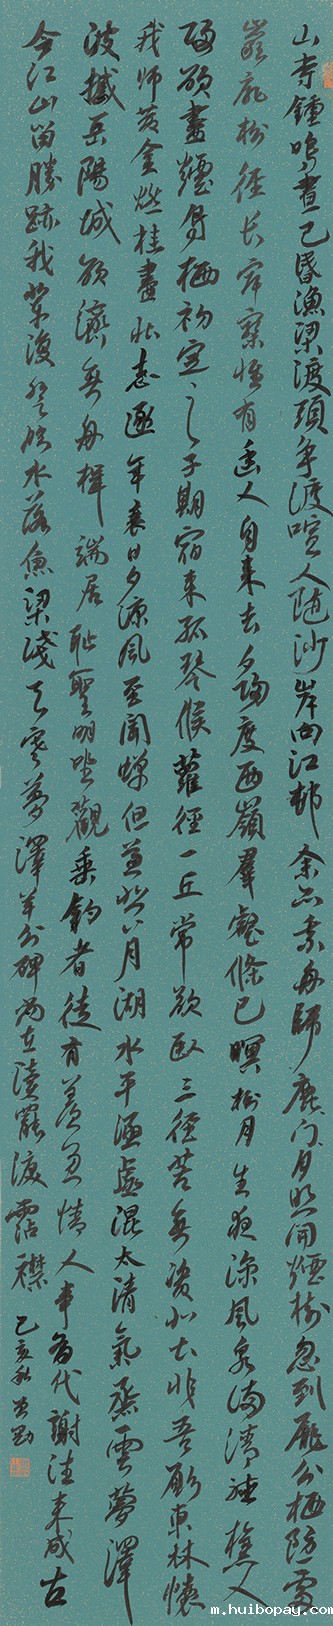 山寺鍾鳴晝已昏漁梁渡頭爭渡喧人随沙岸向江邨余亦乘舟歸鹿门月照開煙樹忽到龐公栖隱處
巖扉松徑長寂寥惟有幽人自来去夕陽度西嶺羣壑倏已暝松月生夜涼風泉滿清聽樵人
歸欲盡煙鳥栖初定之子期宿来孤琴候蘿徑一丘常欲臥三徑苦無資北土非吾願東林懷
我師黃金燃桂盡壯志逐年衰日夕涼風至聞蟬但益悲八月湖水平涵虛混太清氣蒸雲夢澤
波撼岳陽城欲濟無舟楫端居恥聖明坐觀垂釣者徒有羨魚情人事有代謝往来成古
今江山留勝跡我輩復登臨水落魚梁淺天寒夢澤羊公碑尚在讀罷淚霑襟己亥秋勤
m.huibopay.com